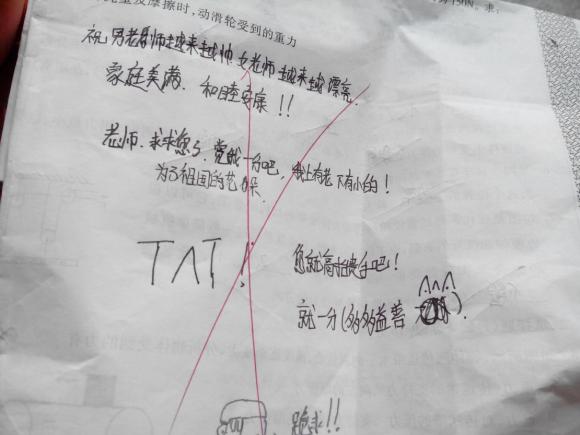 动滑轮受到的重力
祝男老师越来越帅.女老师越来越漂亮.
家庭美满.和睦安康!!
老师.求求您了.赏我一分吧,我上有老下有小的!
为了祖国的花朵.
T∧T!
您就高抬贵手吧!
就一分(多多益善 ∧∧∧).
跪求!!